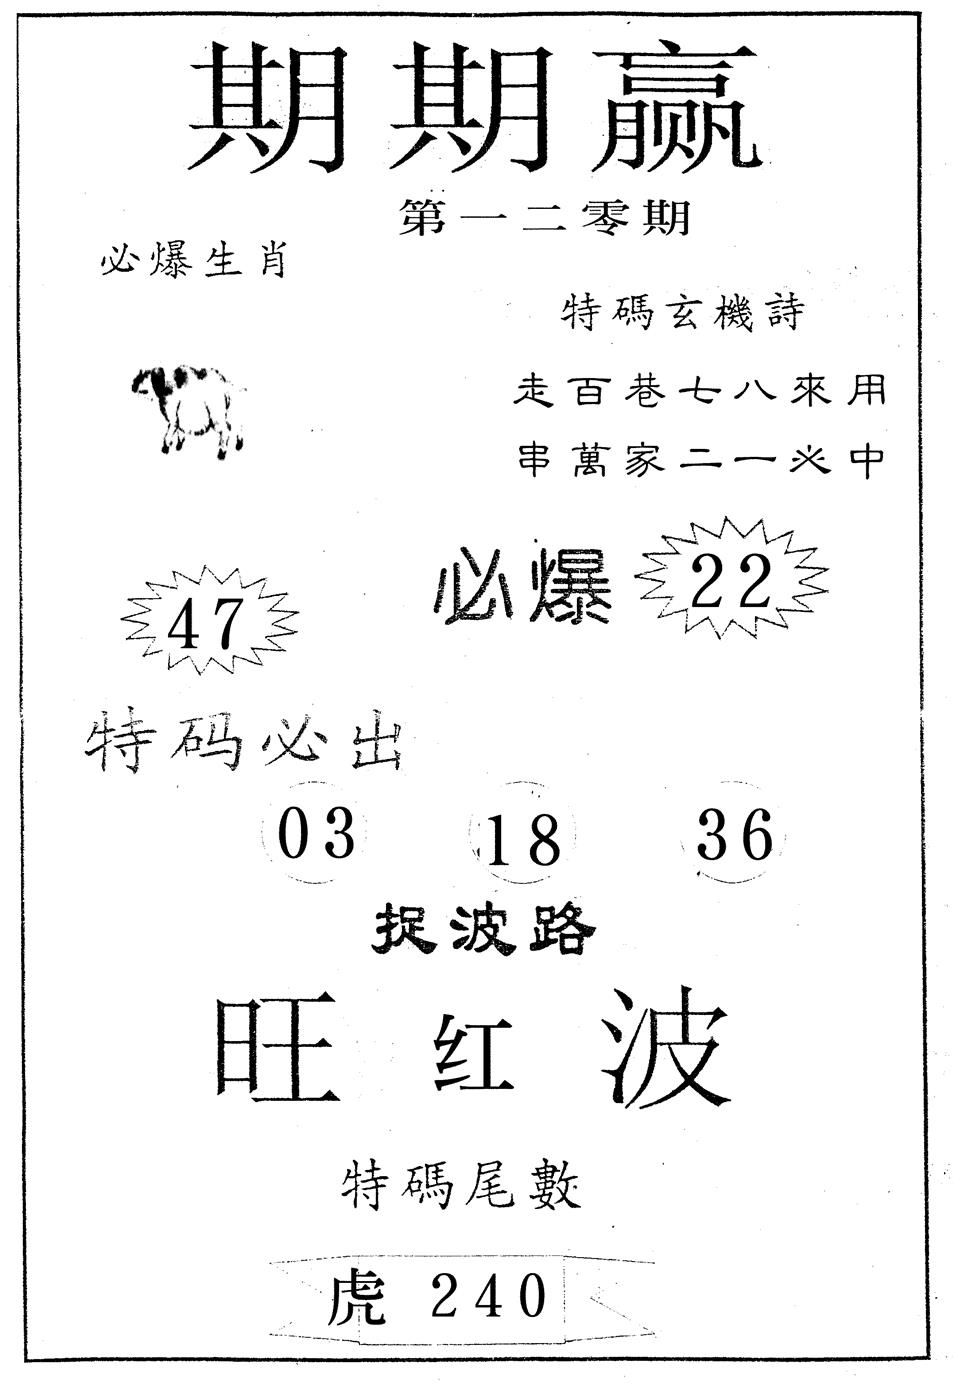 期期赢
第一二零期
必爆生肖
特碼玄機詩
走百巷七八來用
串萬家二一必中
必爆 22
47
特码必出
03 18 36
捉波路
旺红波
特碼尾數
虎 240